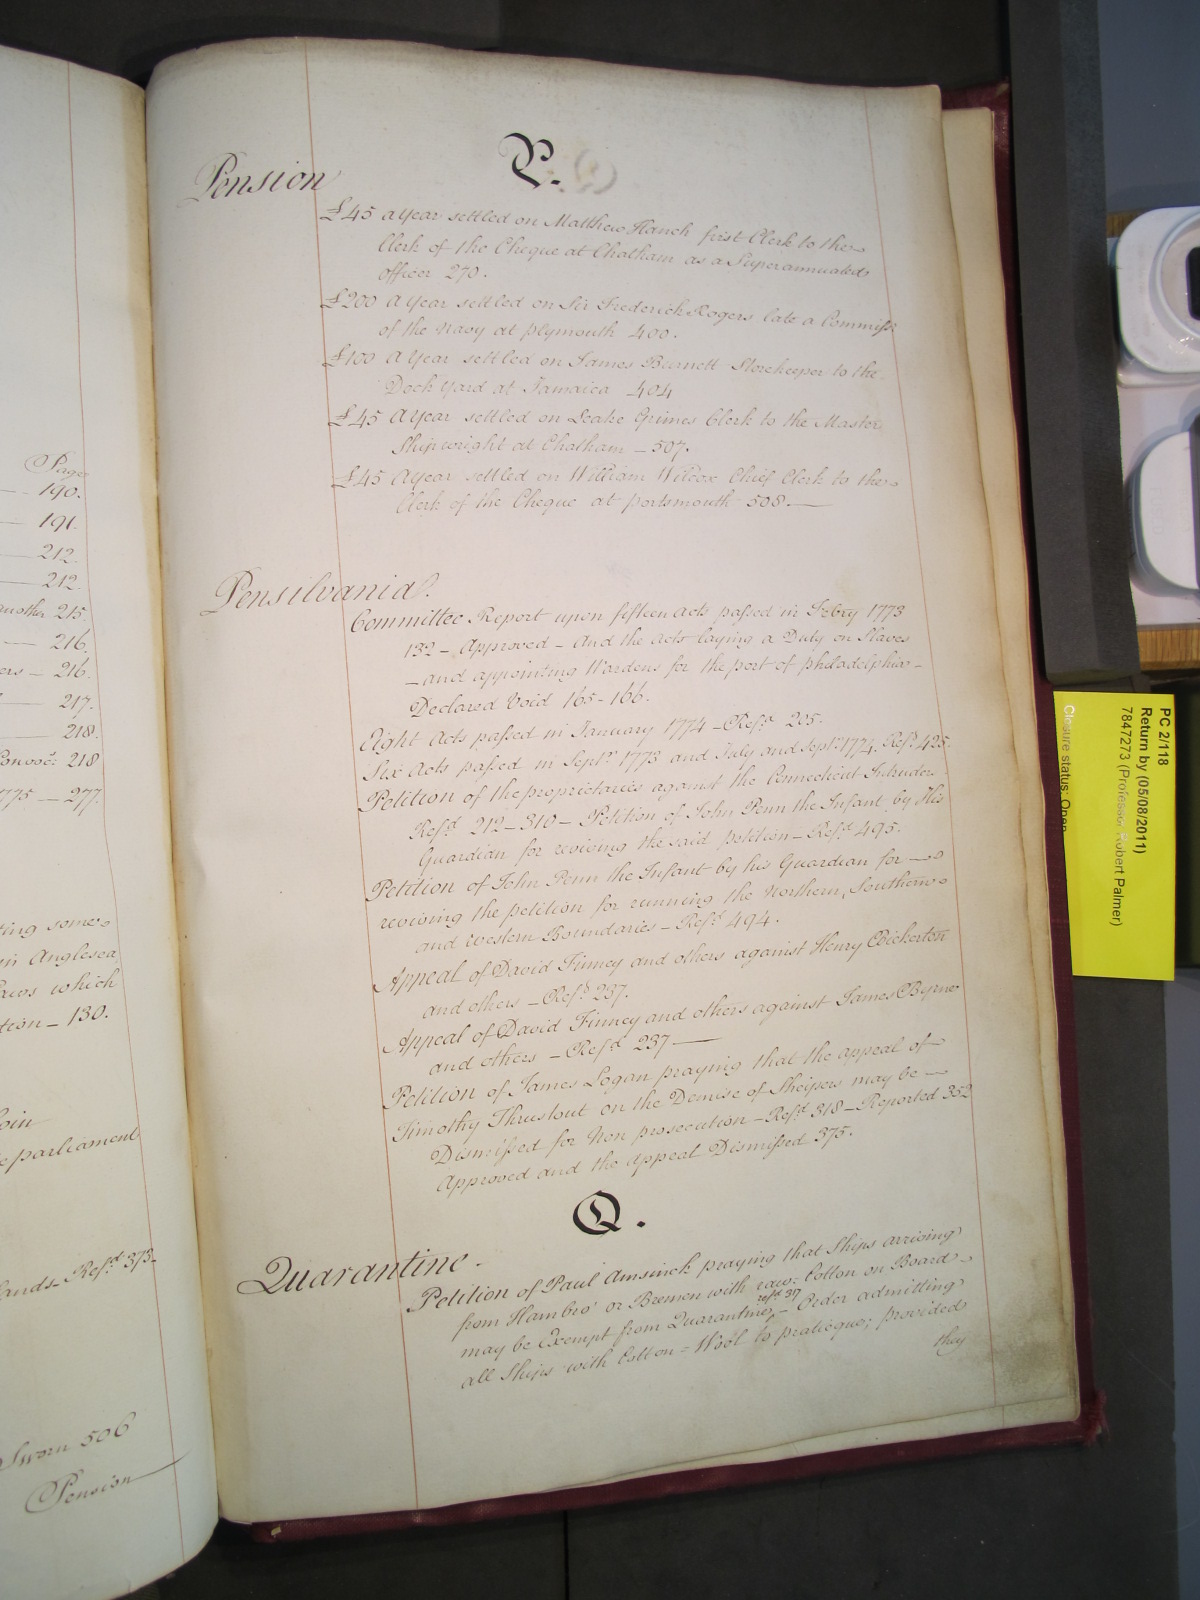 Page
190.
191.
212.
212.
another 215.
216.
ers - 216.
217.
218.
Convoc: 218
1775 - 277.
ting some
in Anglesea
Laws which
tion - 130.
oin
e parliament
ands - Ref.d 373-
Sworn 506
Pension
P.
Pension
£45 a Year settled on Matthew Hanch first Clerk to the
Clerk of the Cheque at Chatham as a Superannuated
officer 270.
£200 a Year settled on Sir Frederick Rogers late a Commiss.r
of the Navy at plymouth 400.
£100 a Year settled on James Burnett Storekeeper to the
Dock Yard at Jamaica 404
£45 a Year settled on Leake Grimes Clerk to the Master
Shipwright at Chatham - 507.
£45 a Year settled on William Wilcox Chief Clerk to the
Clerk of the Cheque at portsmouth 508.
Pensilvania.
Committee Report upon fifteen acts passed in Febry 1773
132 - Approved - And the acts laying a Duty on Slaves
- and appointing Wardens for the port of philadelphia -
Declared Void 165-166.
Eight Acts passed in January 1774 - Ref.d 205.
Six Acts passed in Sept.r 1773 and July and Sept.r 1774. Ref.d 425.
Petition of the proprietaries against the Connecticut Intruders
Ref.d 212 - 310 - Petition of John Penn the Infant by His
Guardian for reviving the said petition - Ref.d 495.
Petition of John Penn the Infant by his Guardian for
reviving the petition for running the Northern, Southern
and Western Boundaries - Ref.d 494.
Appeal of David Finney and others against Henry Bickerton
and others - Ref.d 237.
Appeal of David Finney and others against James Byrne
and others - Ref.d 237
Petition of James Logan praying that the appeal of
Timothy Thrustout on the Demise of Sheysers may be
Dismissed for Non prosecution - Ref.d 318 - Reported 352
Approved and the appeal Dismissed 375.
Q.
Quarantine.
Petition of Paul Amsinck praying that Ships arriving
from Hambro' or Bremen with raw: Cotton on Board
may be Exempt from Quarantine, ref.d 37 - Order admitting
all Ships with Cotton = Wool to pratique; provided
they
PC 2/118
Return by (05/08/2011)
7847273 (Professor Robert Palmer)
Closure status: Open